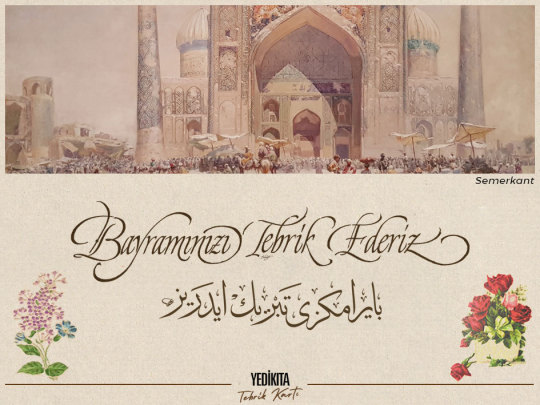 Semerkant
Bayramınızı Tebrik Ederiz
بايرامكزى تبريك ايدريز
YEDİKITA
Tebrik Kartı